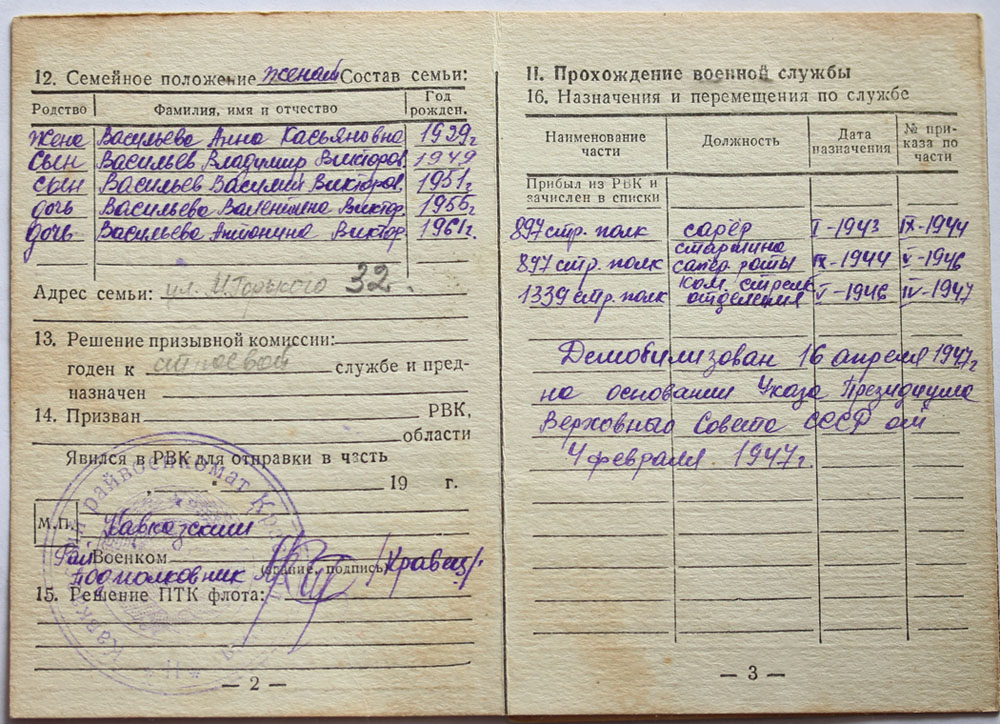 12. Семейное положение женат Состав семьи:
Родство Фамилия, имя и отчество Год рожден.
жена Васильева Анна Касьяновна 1929г
сын Васильев Владимир Викторов. 1949
сын Васильев Василий Викторов. 1951г
дочь Васильева Валентина Виктор. 1955г
дочь Васильева Антонина Виктор. 1961г.
Адрес семьи: ул. М Горького 32.
13. Решение призывной комиссии:
годен к строевой службе и пред-
назначен
14. Призван РВК,
области
Явился в РВК для отправки в часть
19 г.
М.П. Кавказский
Рай Военком
(звание, подпись)
подполковник /Кравец/
15. Решение ПТК флота:
— 2 —
II. Прохождение военной службы
16. Назначения и перемещения по службе
Наименование части Должность Дата назначения № при-каза по части
Прибыл из РВК и
зачислен в списки
897 стр. полк сапёр I-1943 IX-1944
897 стр. полк старшина сапер. роты IX-1944 V-1946
1339 стр. полк ком. стрелк отделения V-1946 IV-1947
Демобилизован 16 апреля 1947г
на основании Указа Президиума
Верховного Совета СССР от
4 февраля. 1947г.
— 3 —